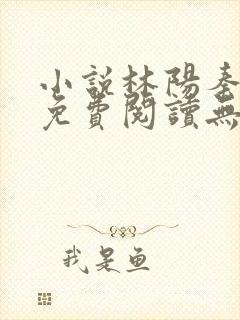 小說林陽秦
免費閱讀無
我是鱼